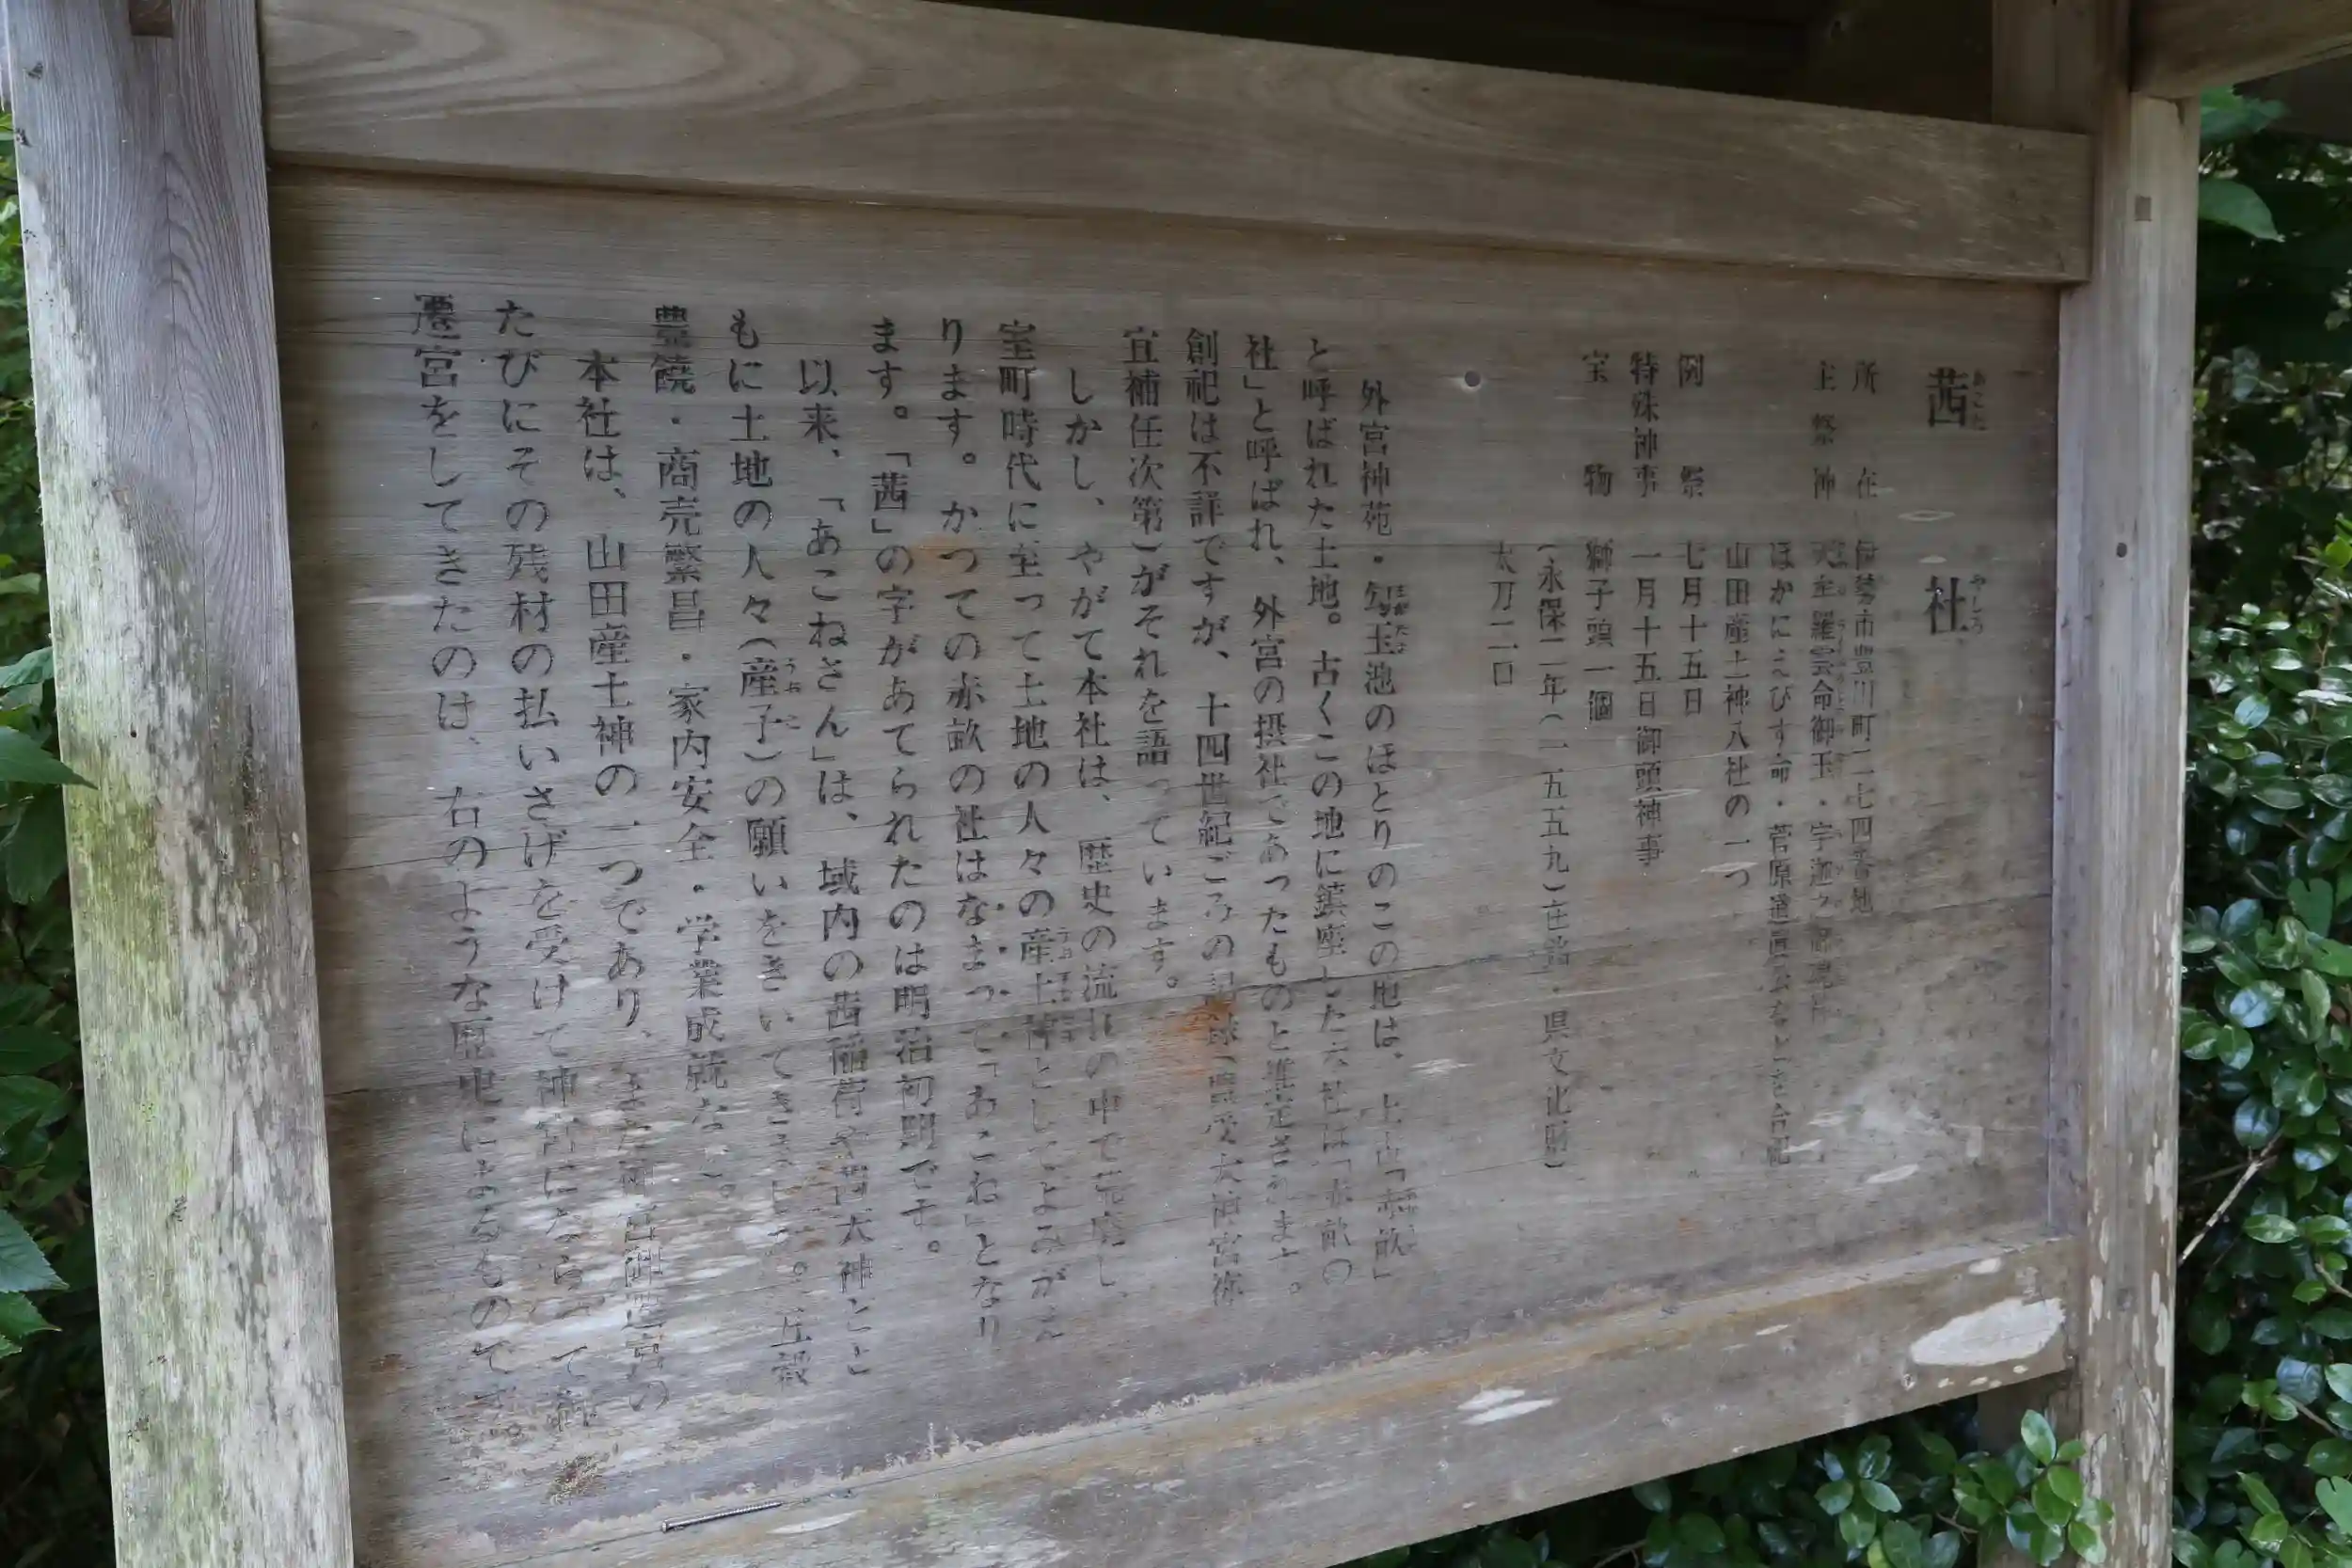 茜社
所在 伊勢市豊川町一七四番地
主祭神 天牟羅雲命御玉・宇迦之御魂神
ほかにえびす命・菅原道真公など合祀
山田産土神八社の一つ
例祭 七月十五日
特殊神事 一月十五日御頭神事
宝物 獅子頭一個
(永保二年(一五五九)在銘・県文化財)
太刀二口
外宮神苑・勾玉池のほとりのこの地は、「赤畝」
と呼ばれた土地。古くこの地に鎮座した六社は「赤畝の
社」と呼ばれ、外宮の摂社であったものと推定されます。
創祀は不詳ですが、十四世紀ごろの記録(豊受大神宮祢
宜補任次第)がそれを語っています。
しかし、やがて本社は、歴史の流れの中で荒廃し、
室町時代に至って土地の人々の産土神としてよみがえ
ります。かつての赤畝の社はなまって「あこね」となり
ます。「茜」の字があてられたのは明治初期です。
以来、「あこねさん」は、域内の茜稲荷や茜天神とと
もに土地の人々(産子)の願いをきいてきました。五穀
豊饒・商売繁昌・家内安全・学業成就など。
本社は、山田産土神の一つであり、また神宮御遷宮の
たびにその残材の払いさげを受けて神宮にならって
遷宮をしてきたのは、右のような歴史によるものです。